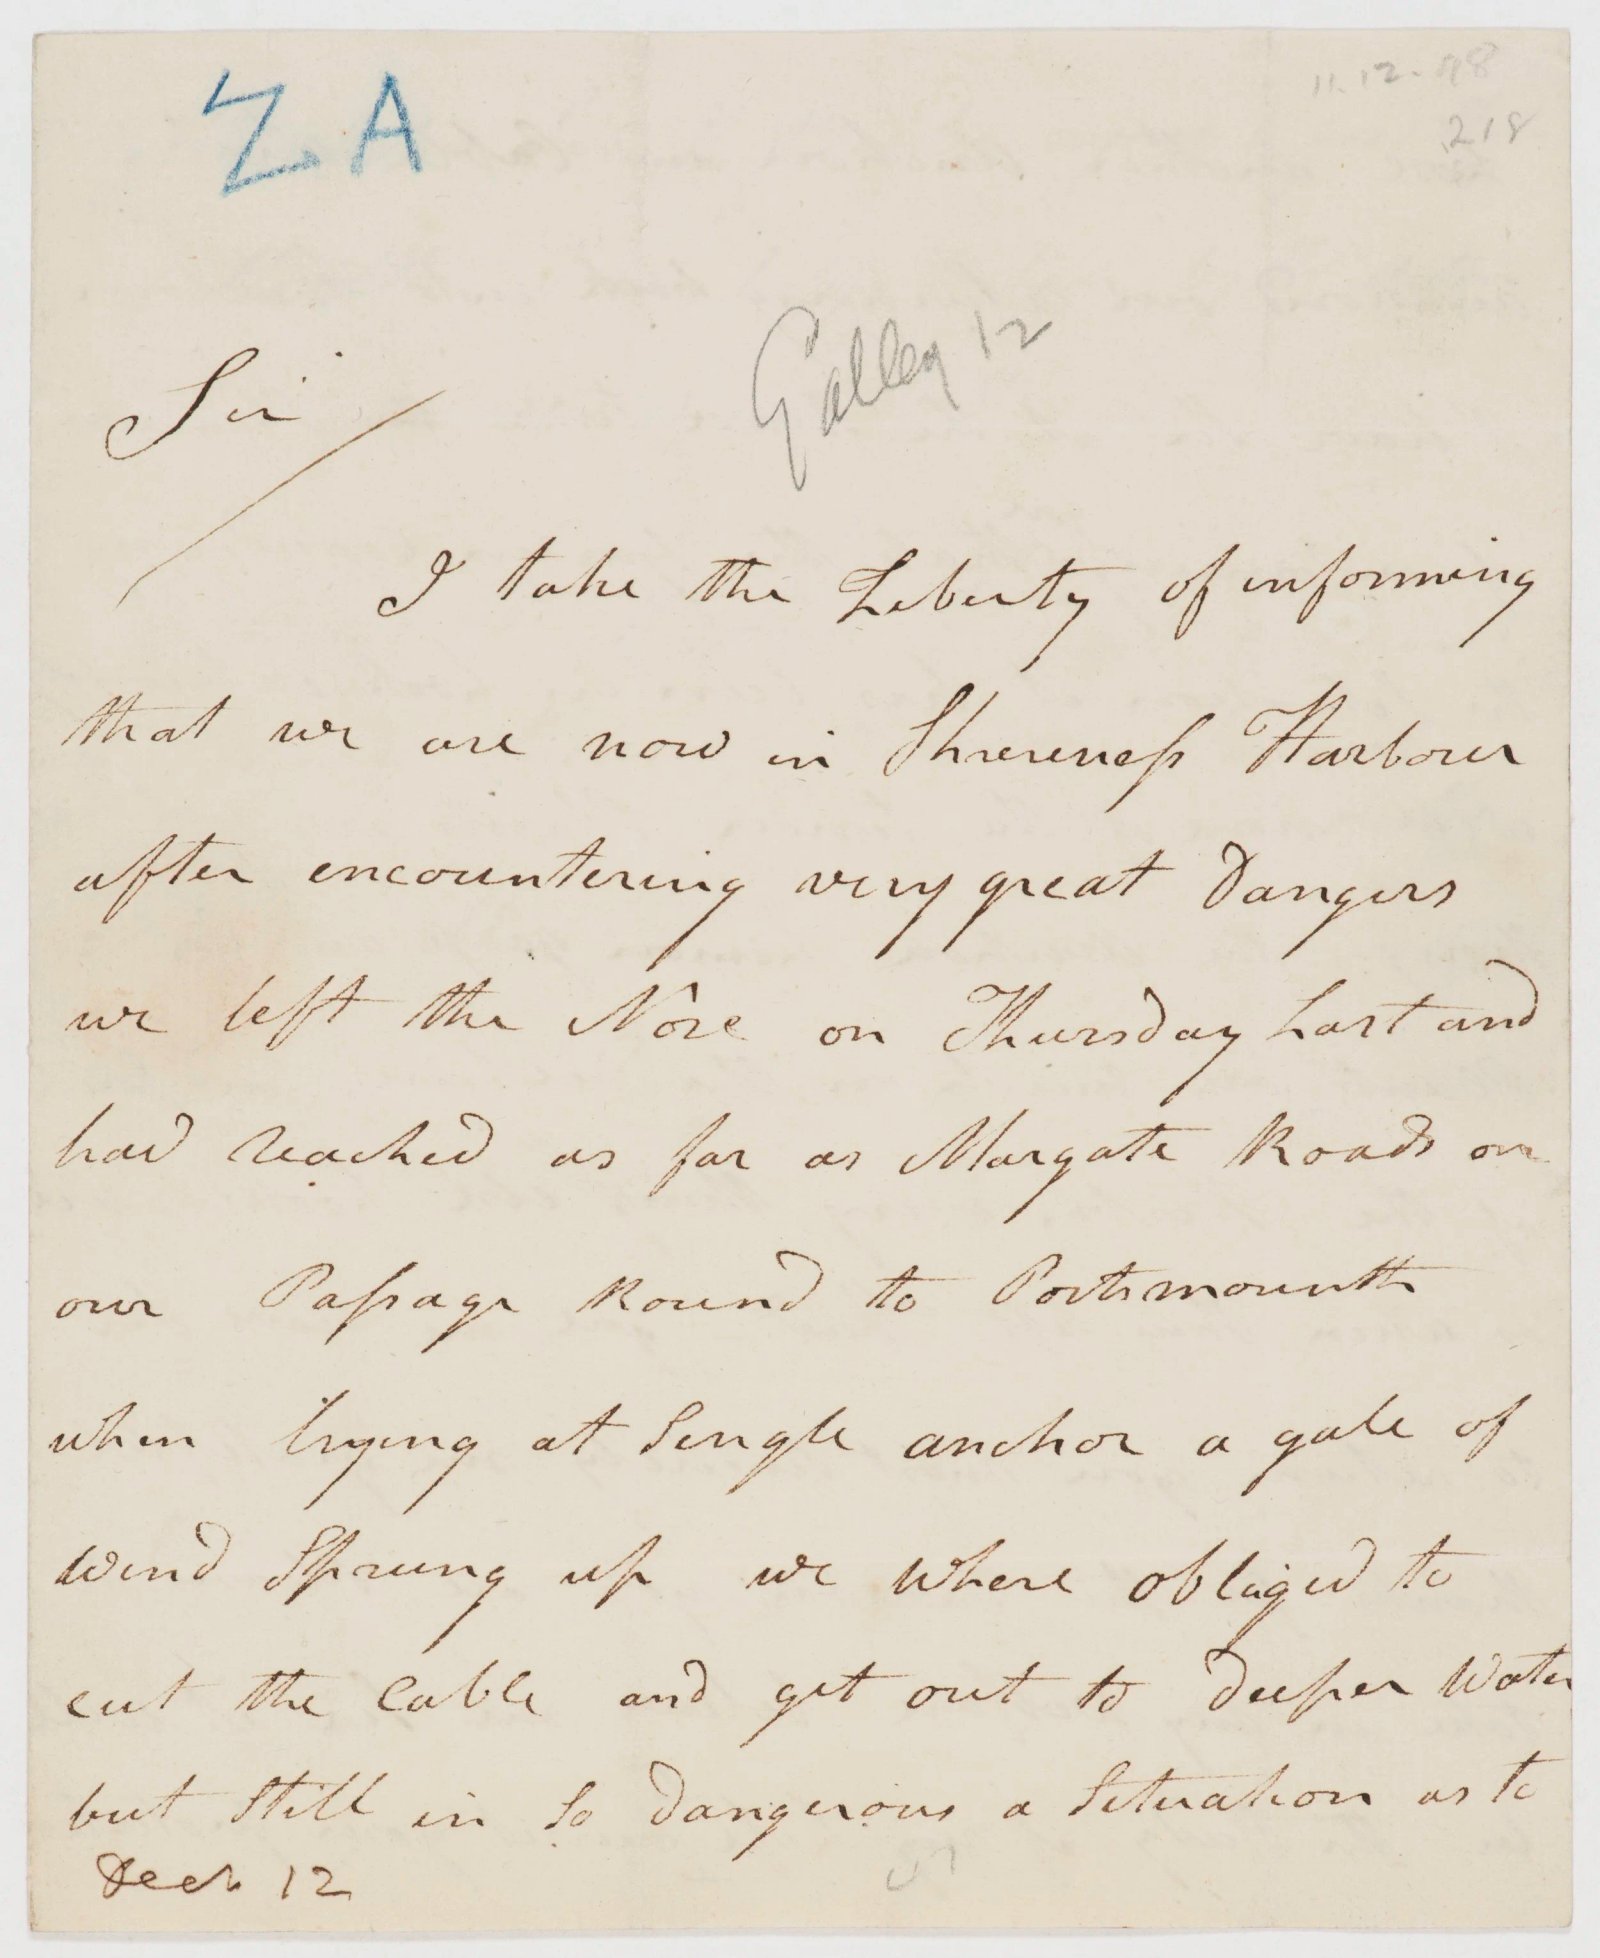 Z.A
11.12.98
218
Galley 12
Sir
I take the Liberty of informing
that we are now in Sheereness Harbour
after encountering very great Dangers
we left the Nore on Thursday Last and
had reached as far as Margate Roads on
our Passage Round to Portsmounth
when lrying at Single anchor a gale of
Wind Sprung up we Where obliged to
cut the Cable and get out to deeper Water
but Still in So dangerous a Situation as to
Decr 12